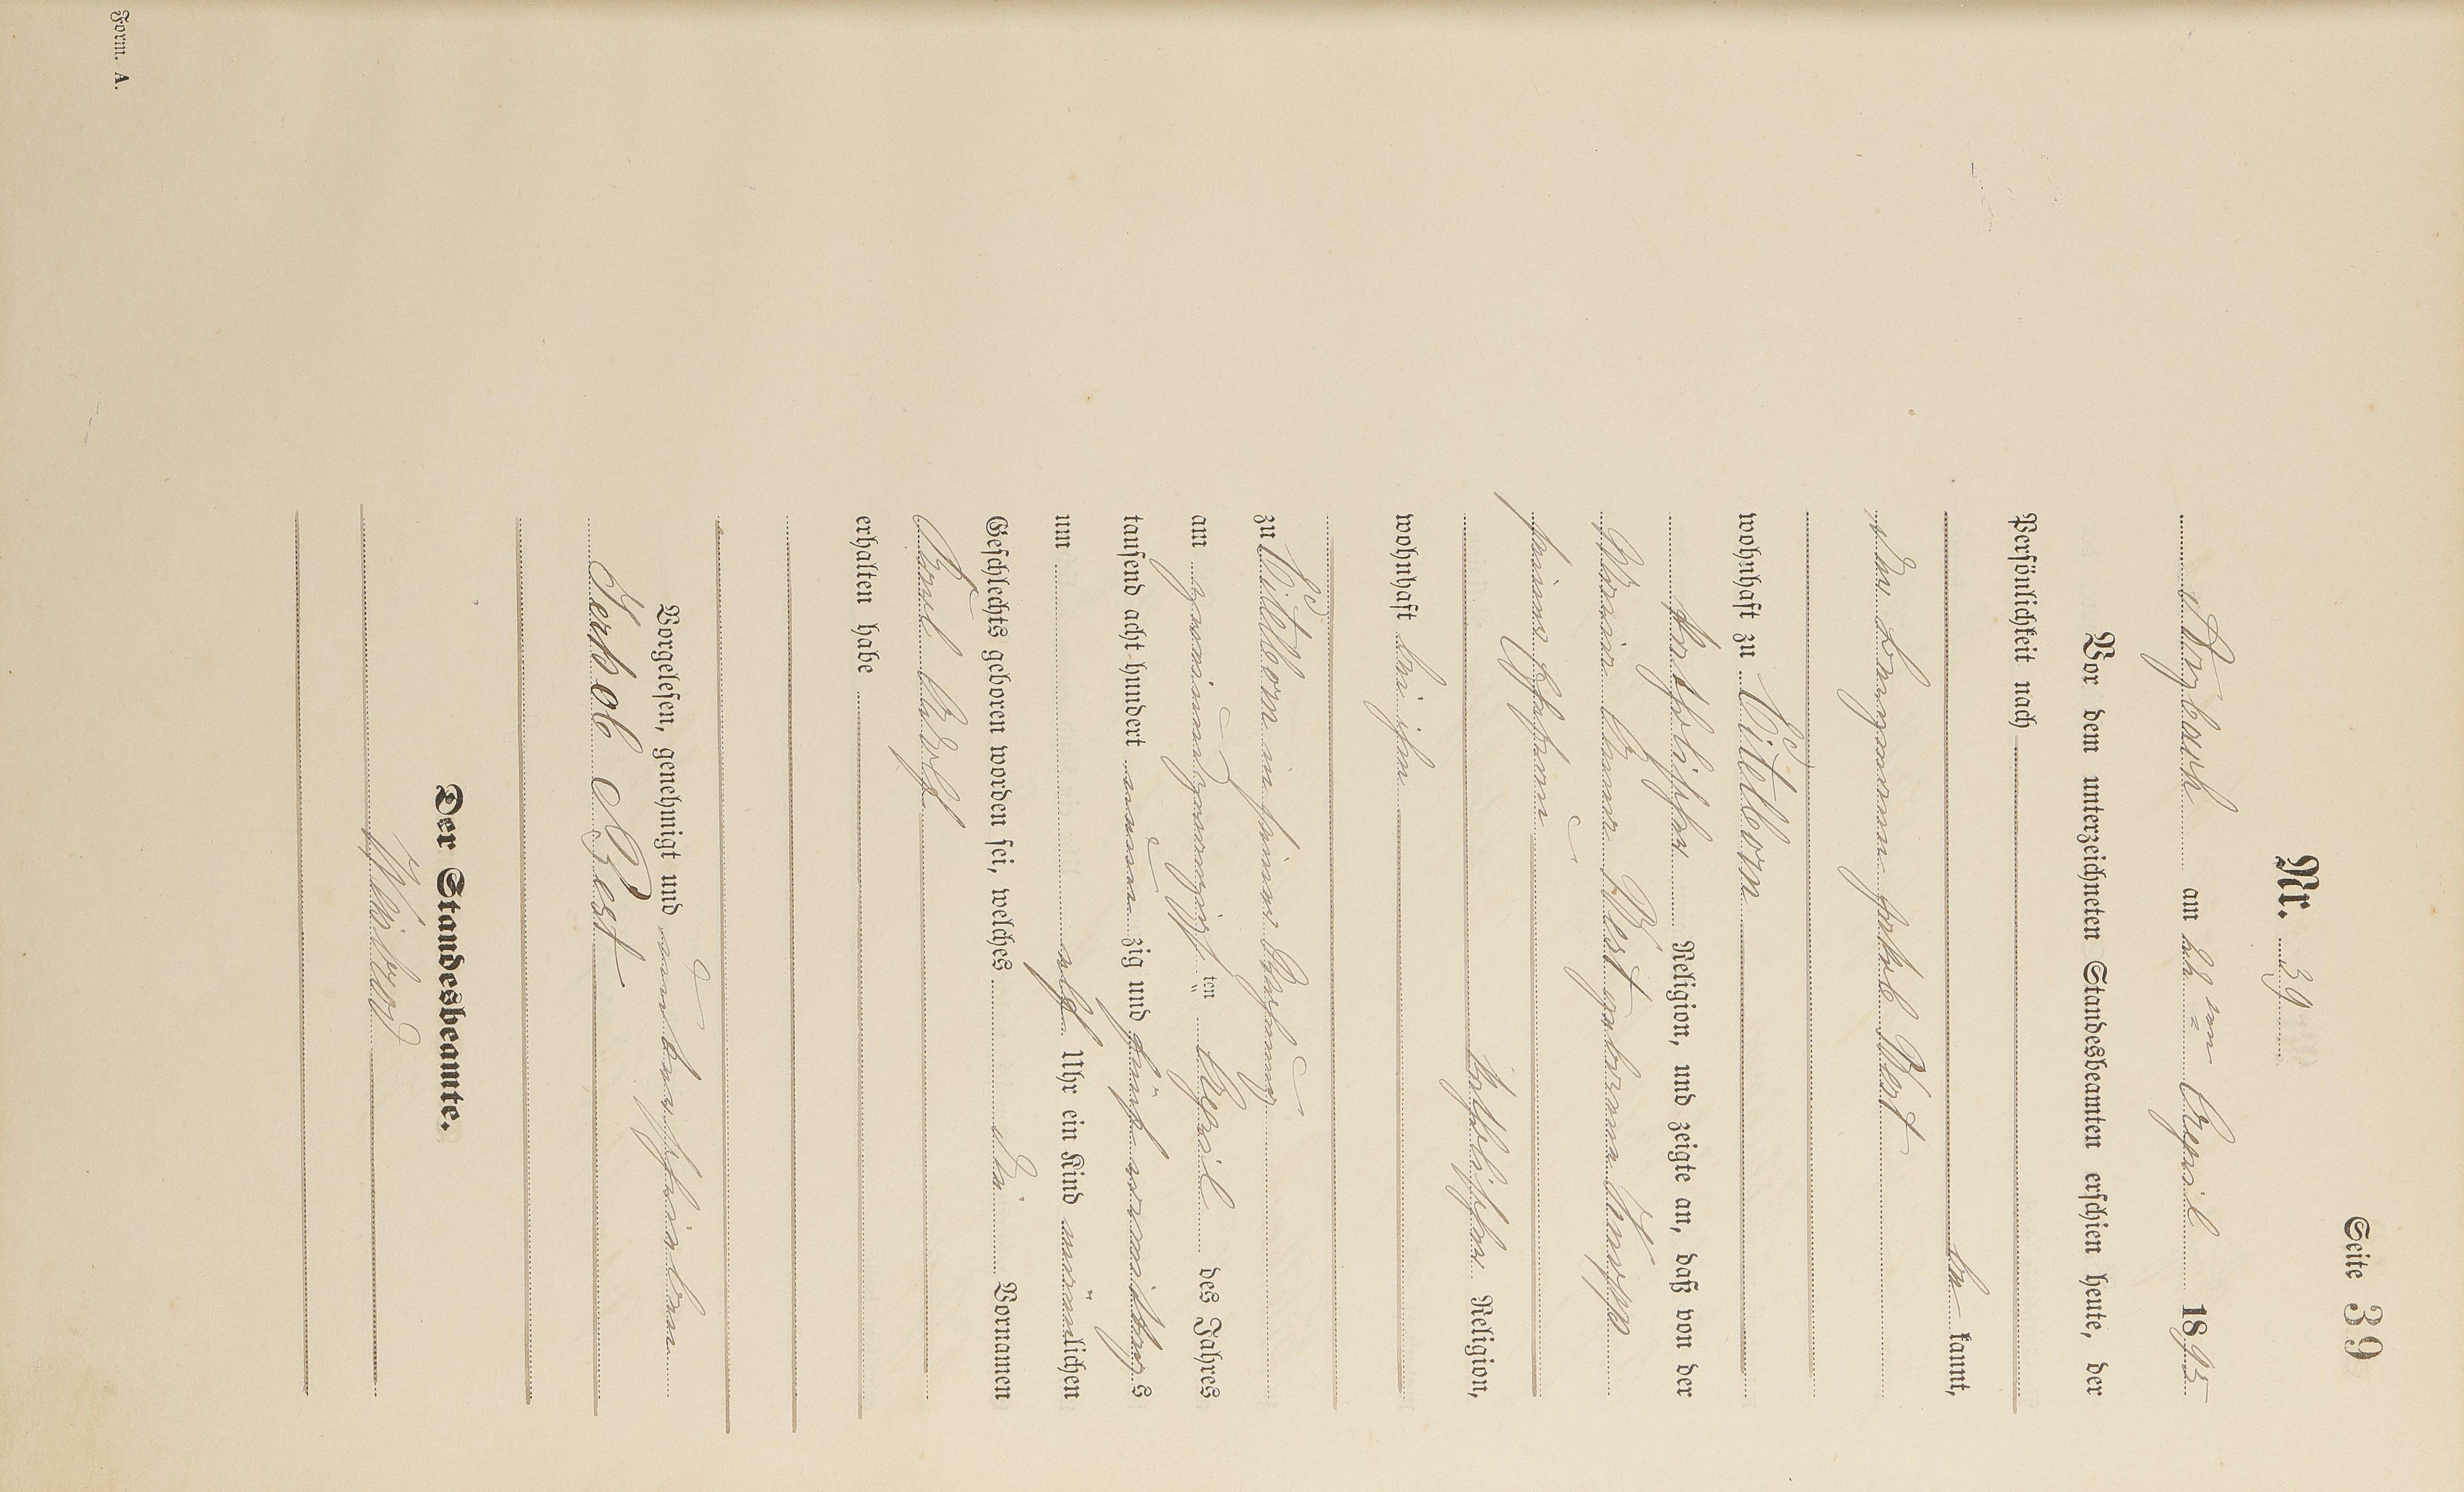 Seite 39
Nr. 39
Arzbach am 24ten April 1895
Vor dem unterzeichneten Standesbeamten erschien heute, der
Persönlichkeit nach
be kannt,
der Bergmann Jakob Best
wohnhaft zu Cadenborn
katholischer Religion, und zeigte an, daß von der
Maria Anna Best geborene Knopp
seiner Ehefrau
katholischer Religion,
wohnhaft bei ihm
zu in seiner Wohnung
am zweiundzwanzigsten April des Jahres
tausend acht hundert neunzig und fünf vormittags
um elf Uhr ein Kind männlichen
Geschlechts geboren worden sei, welches die Vornamen
Paul Adolf
erhalten habe
Vorgelesen, genehmigt und unterschrieben
Jakob Best
Der Standesbeamte.
Form. A.